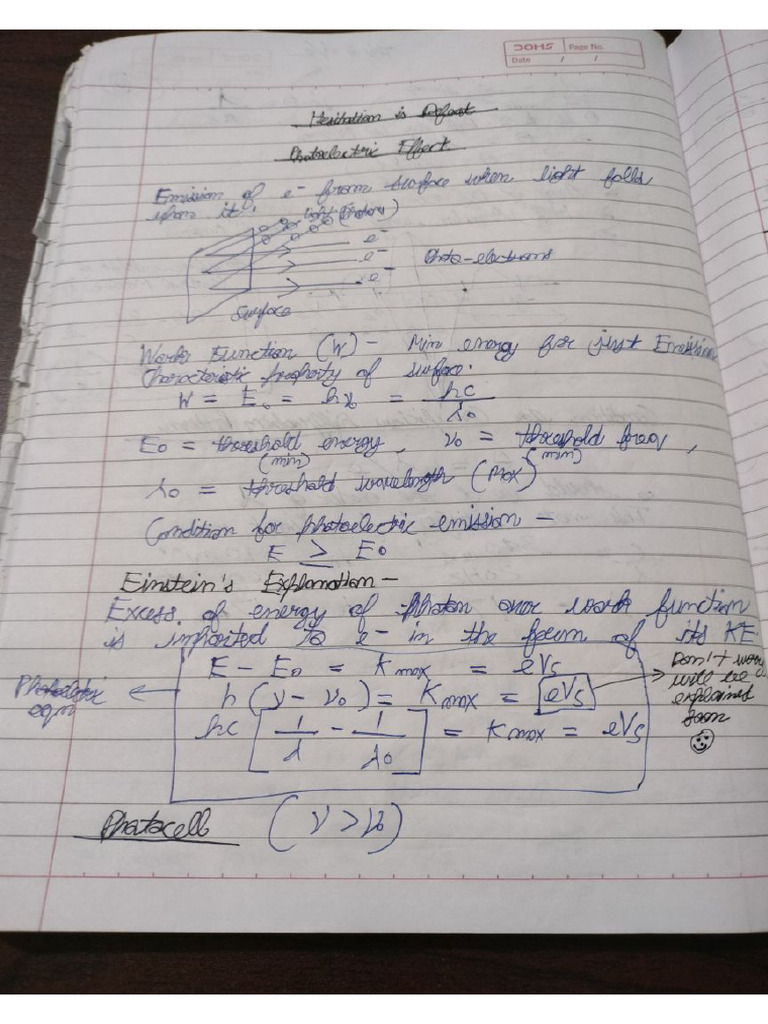 DOMS
Page No.
Date / /
Hesitation is Defeat
Photoelectric Effect
Emission of e⁻ from surface when light falls
upon it.
light (Photons)
e⁻
e⁻
e⁻
Photo-electrons
Surface
Work Function (W) - Min energy for just Emission
Characteristic property of surface.
W = E₀ = hν₀ = hc/λ₀
E₀ = threshold energy, ν₀ = threshold freq,
(min) (min)
λ₀ = threshold wavelength (Max)
Condition for photoelectric emission -
E ≥ E₀
Einstein's Explanation -
Excess of energy of photon over work function
is imparted to e⁻ in the form of its KE.
E - E₀ = Kmax = eVs
Photoelectric
eqn
h (ν - ν₀) = Kmax = eVs
hc [1/λ - 1/λ₀] = Kmax = eVs
Don't worry
will be
explained
soon
Photocell (ν > ν₀)